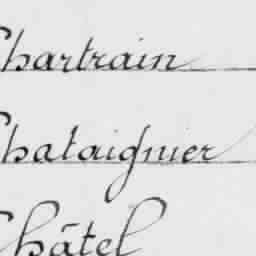 Chartrain
Chataignier
Châtel